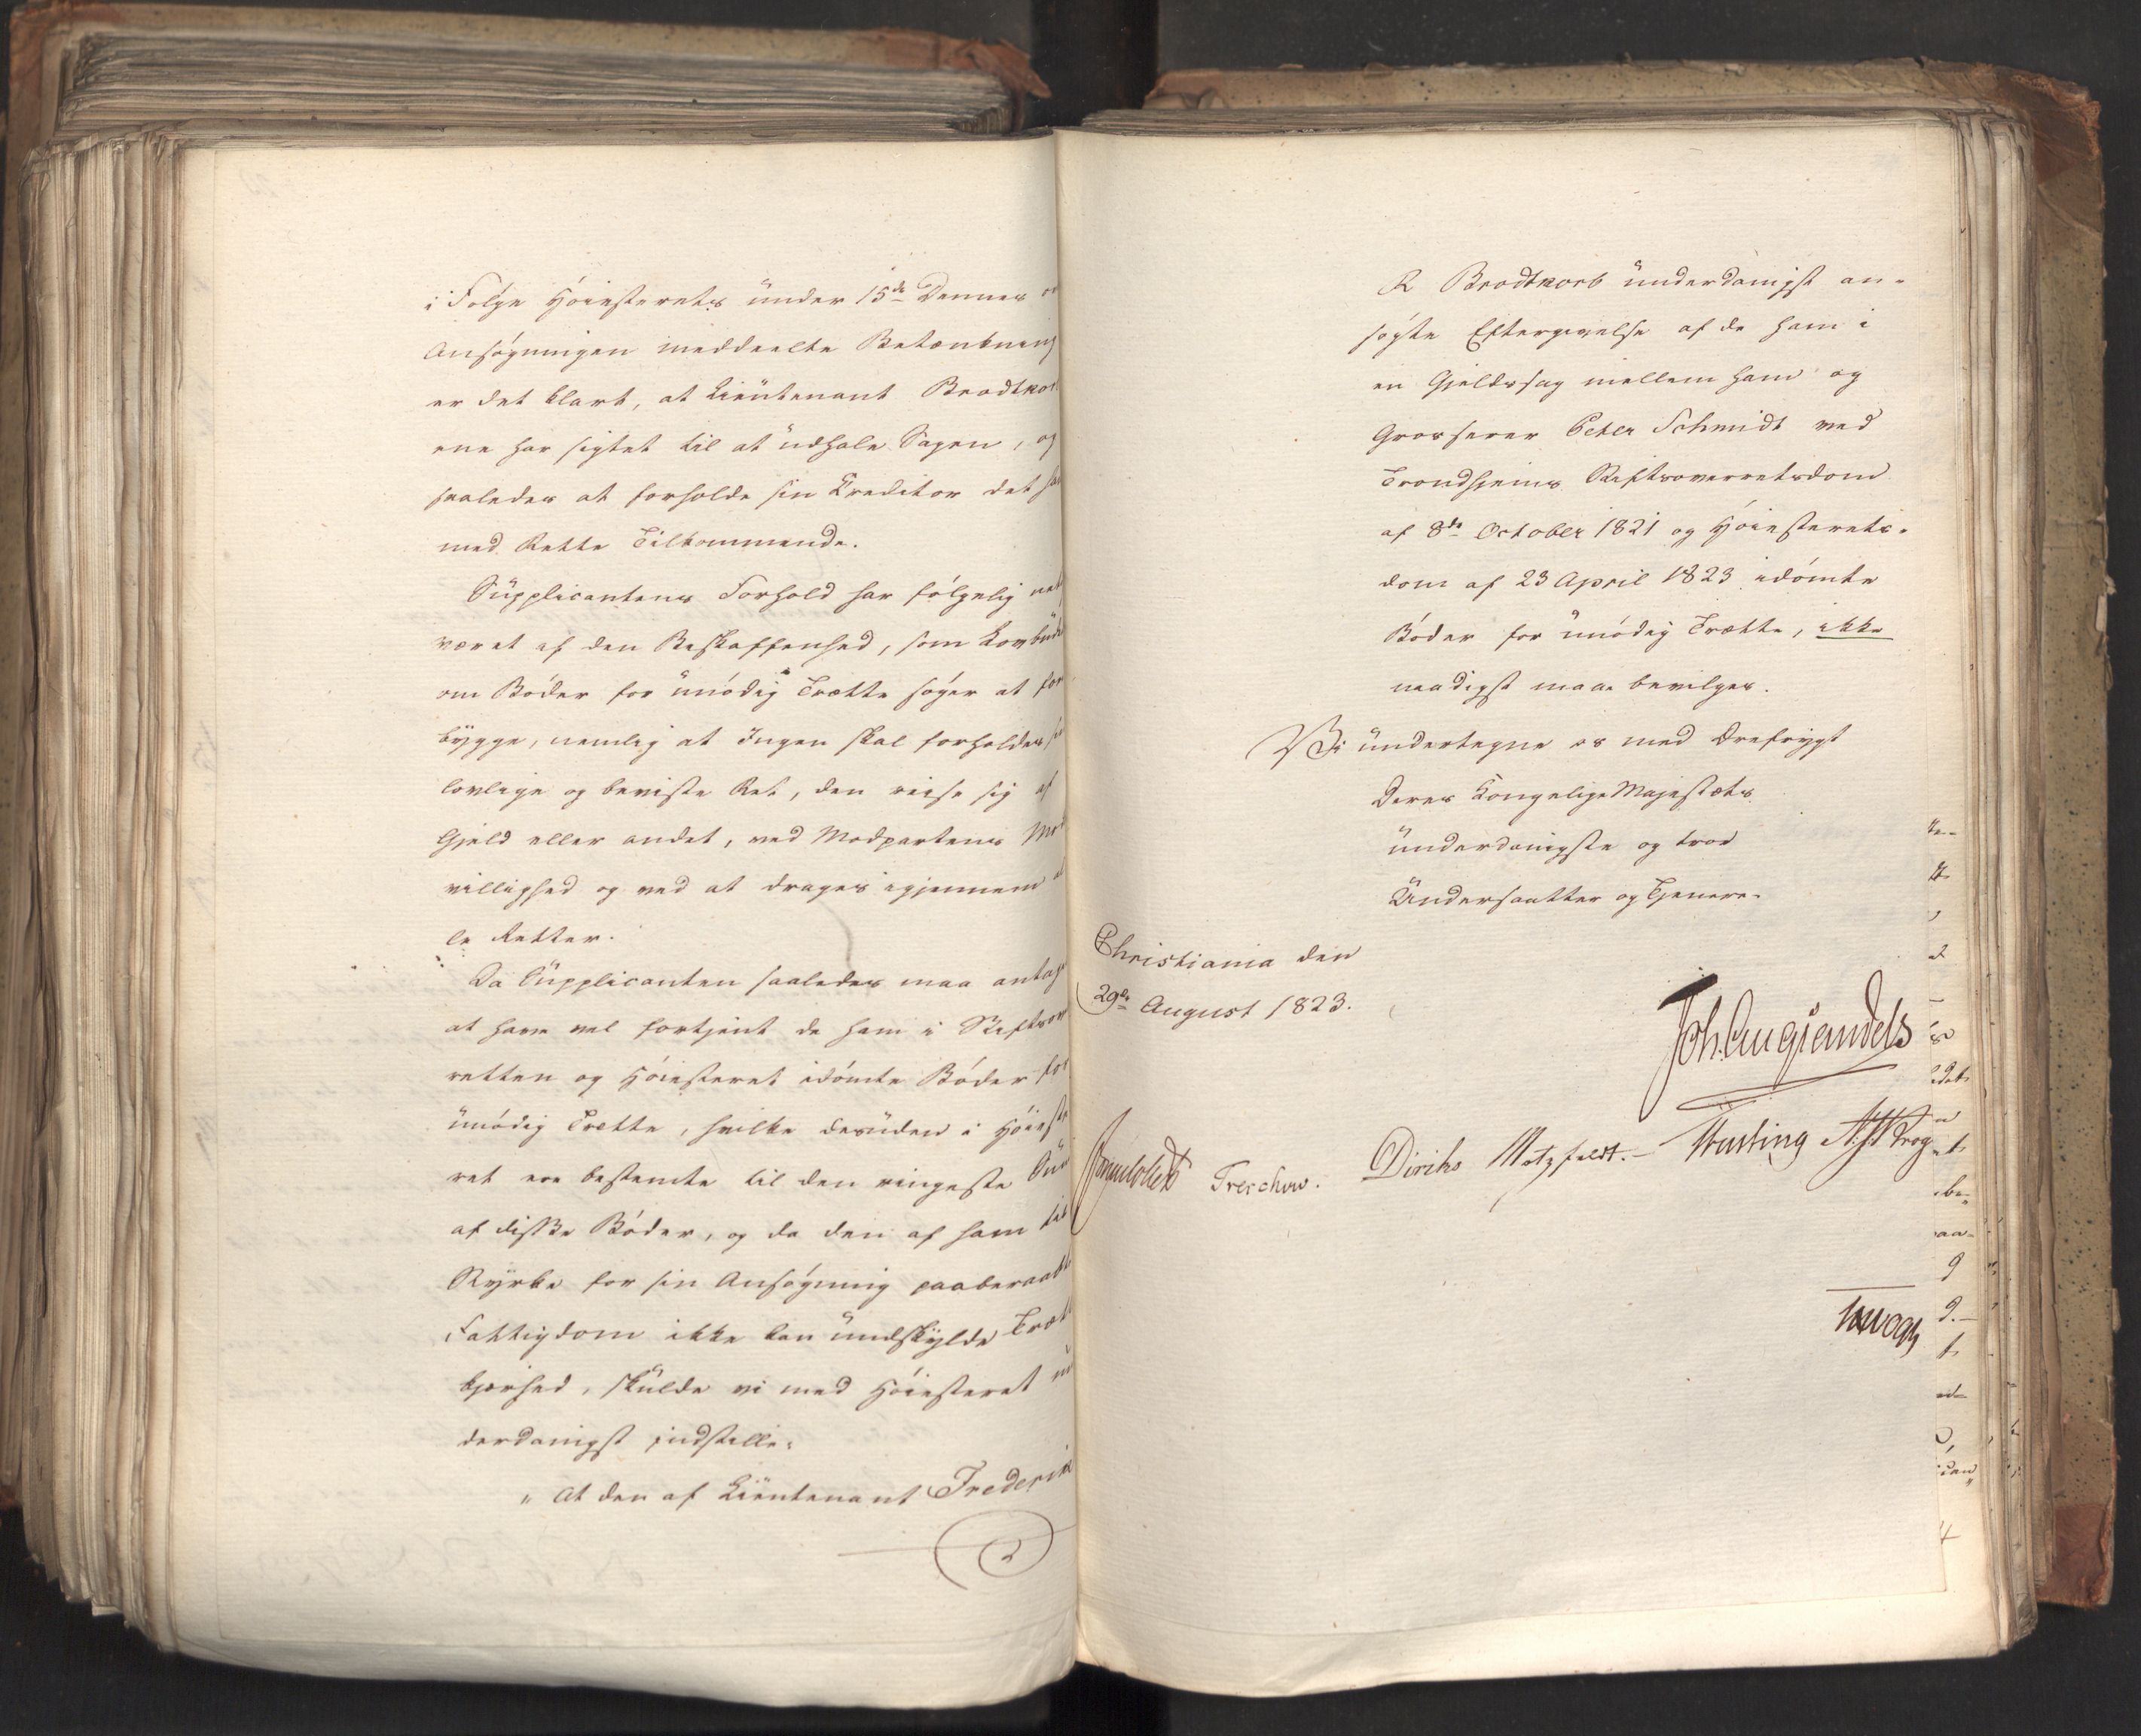 i Følge Høiesterets under 15de Dennes
Ansøgningen meddeelte Betænkning
er det klart, at Lieutenant Brodtkor
ene har sigtet til at udhale Sagen, og
saaledes at forholde sin Creditor det ha
med Rette Tilkommende.
Supplicantens Forhold har følgelig net
været af den Beskaffenhed, som Lovbud
om Bøder for unødig Trætte søger at for
bygge, nemlig at Ingen skal forholdes si
lovlige og beviste Ret, den reise sig af
Gjeld eller andet, ved Modpartens Mod
villighed og ved at drages igjennem al
le Retter.
Da Supplicanten saaledes maa antag
at have vel fortjent de ham i Stiftsov
retten og Høiesteret idømte Bøder for
unødig Trette, hvilke desuden i Høieste
ret ere bestemte til den ringeste Sum
af disse Bøder, og da den af ham til
Styrke for sin Ansøgning paaberaabte
Fattigdom ikke kan undskylde Træt
kjærhed, skulde vi med Høiesteret un
derdanigst indstille:
" At den af Lieutenant Frederik
R Brodtkorb underdanigst an-
søgte Eftergivelse af de ham i
en Gjeldssag mellem ham og
Grosserer Peter Schmidt ved
Trondhjems Stiftsoverretsdom
af 8de October 1821 og Høiesterets-
dom af 23 April 1823 idømte
Bøder for unødig Trætte, ikke
naadigst maae bevilges.
Vi undertegne os med Ærefrygt
Deres Kongelige Majestæts
underdanigste og troe
Undersaatter og Tjenere.
Christiania den
29de August 1823.
Joh. Aug Sandels
Sommerhielm Treschow. Diriks Motzfeldt. Fasting